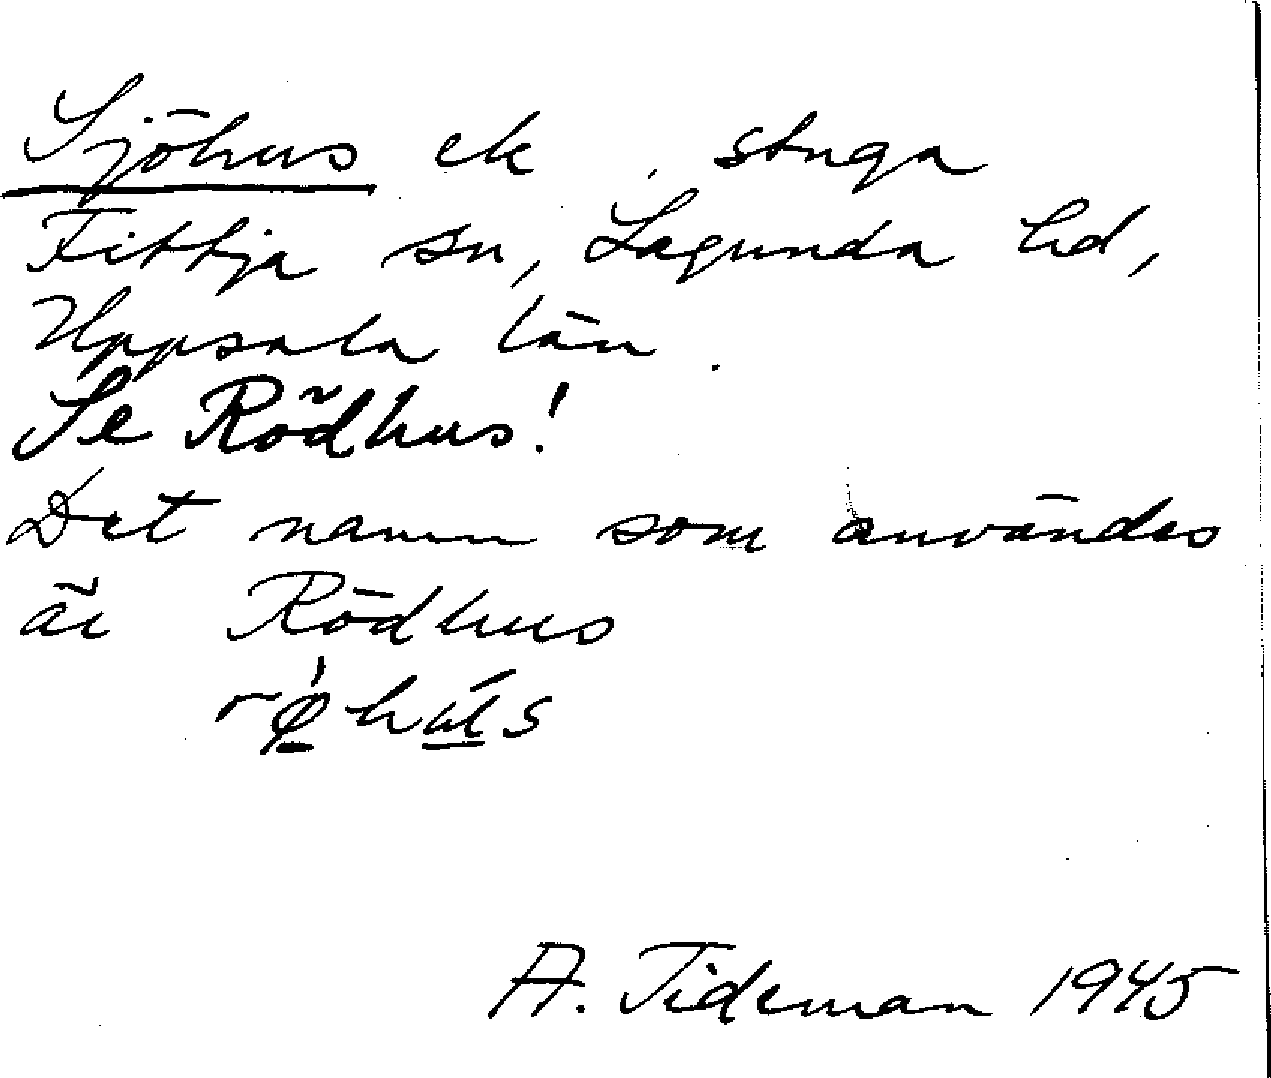 Sjöhus ek , stuga
Fittja sn, Lagunda hd,
Uppsala län.
Se Rödhus!
Det namn som användes
är Rödhus
A. Tideman 1945